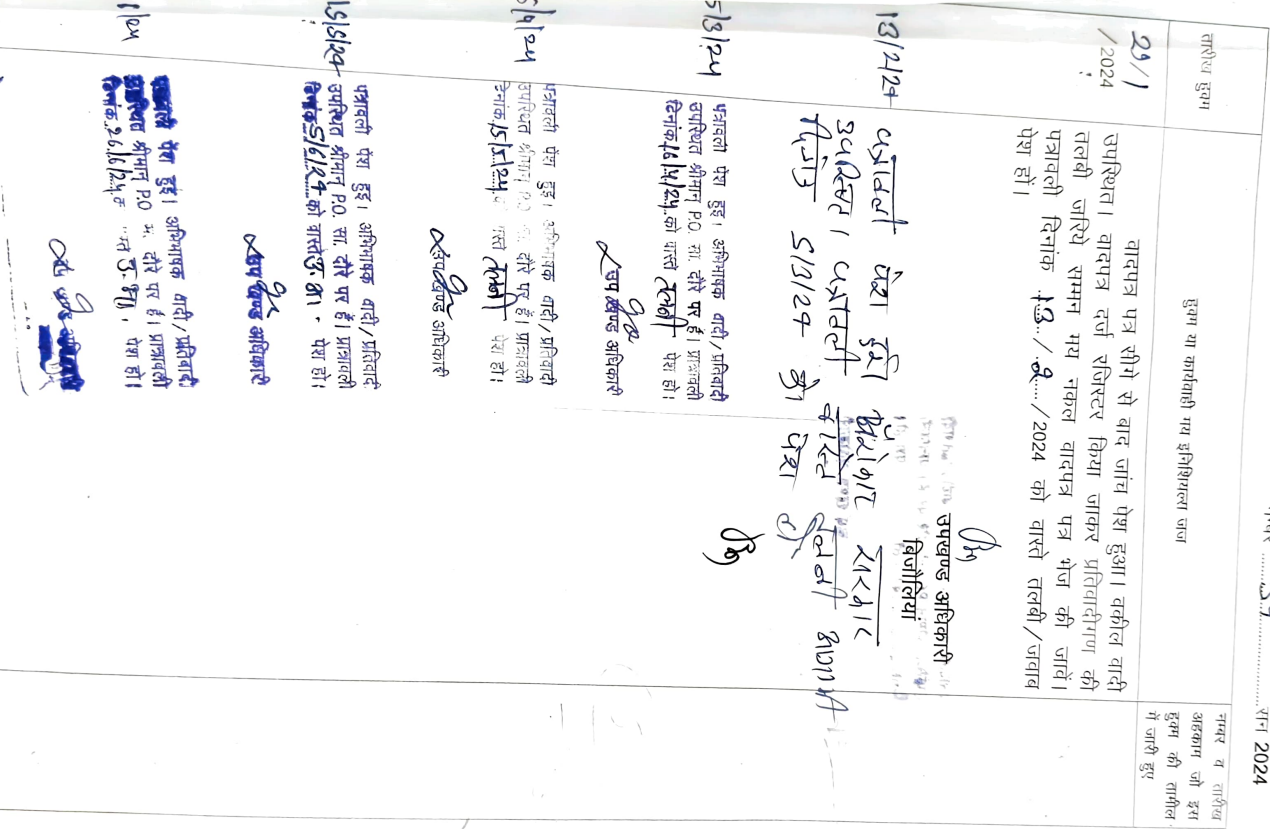 सन 2024
तारीख हुक्म
हुक्म या कार्यवाही मय इनिशियल्स जज
नम्बर व तारीख
अहकाम जो इस
हुक्म की तामील
में जारी हुए
29/1
/2024
वादपत्र पत्र सीगे से बाद जांच पेश हुआ। वकील वादी
उपस्थित। वादपत्र दर्ज रजिस्टर किया जाकर प्रतिवादीगण की
तलबी जरिये सम्मन मय नकल वादपत्र पत्र भेज की जावें।
पत्रावली दिनांक 13 / 2 /2024 को वास्ते तलबी/जवाब
पेश हों।
उपखण्ड अधिकारी
बिजौलिया
13/2/24
पत्रावली पेश हुई। सरकार
उपस्थित। पत्रावली वास्ते तलबी
5/3/24 को पेश हो
5/3/24
पत्रावली पेश हुइ। अभिभाषक वादी/प्रतिवादी
उपस्थित श्रीमान् P.O. सा. दौरे पर हैं। प्रात्रावली
दिनांक 16/4/24 को वास्ते तलबी पेश हो।
उप खण्ड अधिकारी
/4/24
पत्रावली पेश हुइ। अभिभाषक वादी/प्रतिवादी
उपस्थित श्रीमान् P.O. सा. दौरे पर हैं। प्रात्रावली
दिनांक 15/5/24 वास्ते तलबी पेश हो।
उपखण्ड अधिकारी
15/5/24
पत्रावली पेश हुइ। अभिभाषक वादी/प्रतिवादी
उपस्थित श्रीमान् P.O. सा. दौरे पर हैं। प्रात्रावली
दिनांक 5/6/24 को वास्ते उ.भा. पेश हो।
उप खण्ड अधिकारी
/24
पेश हुइ। अभिभाषक वादी/प्रतिवादी
श्रीमान् P.O दौरे पर हैं। प्रात्रावली
दिनांक 26/6/24 उ.भा. पेश हो।